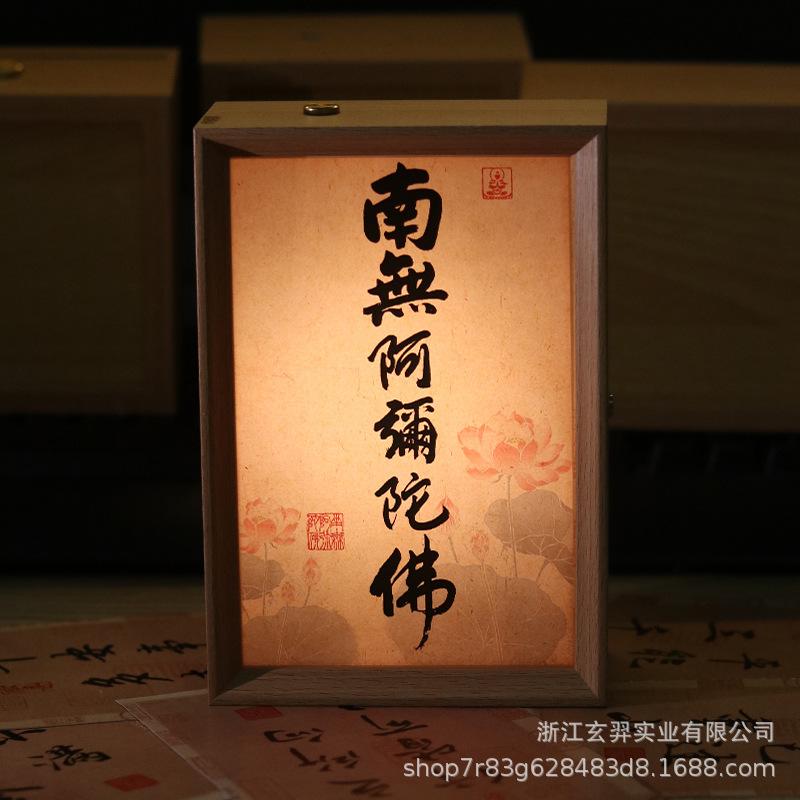 南無阿彌陀佛
浙江玄羿实业有限公司
shop7r83g628483d8.1688.com